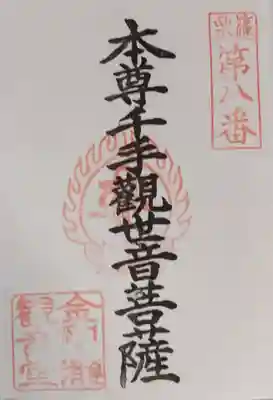 第八番
本尊千手觀世音菩薩